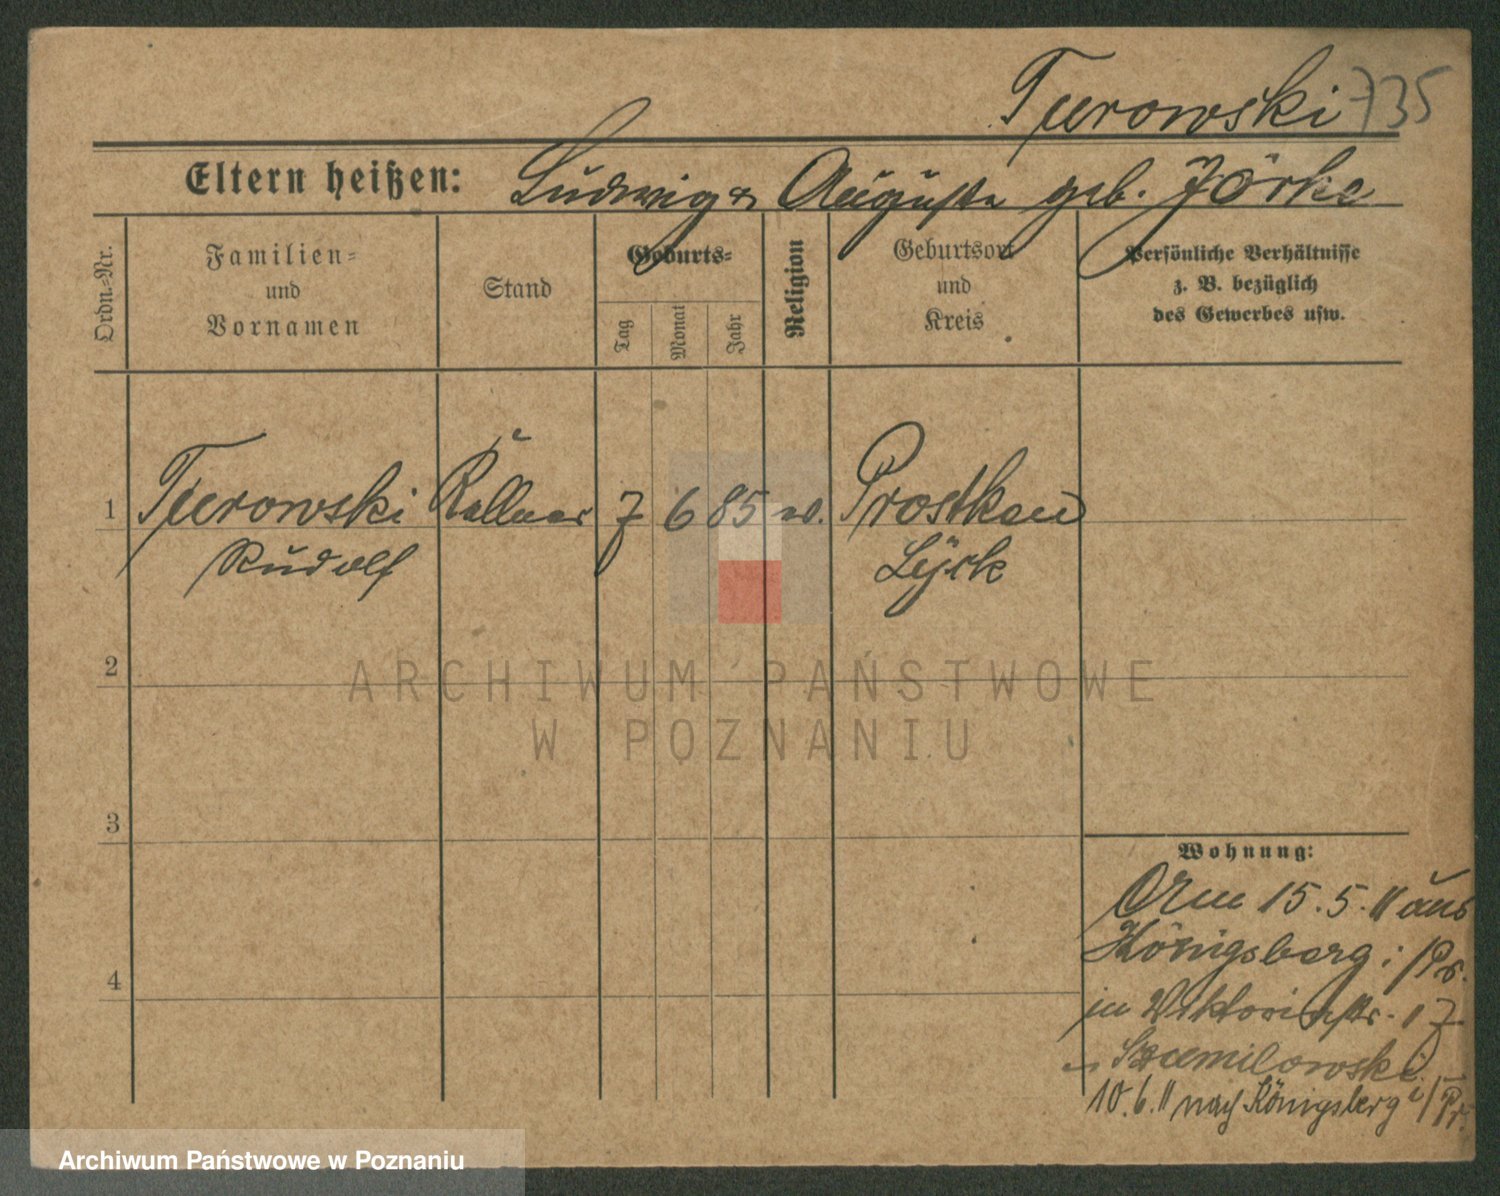 Turowski 735
Eltern heißen: Ludwig & Auguste geb. Jörke
Ordn.-Nr.
Familien-
und
Vornamen
Stand
Geburts-
Tag
Monat
Jahr
Religion
Geburtsort
und
Kreis
Persönliche Verhältnisse
z. B. bezüglich
des Gewerbes usw.
1 Turowski Kellner 7 6 85 ev. Prostken
Rudolf Lyck
2
3
4
Wohnung:
Am 15.5.11 aus
Königsberg i/Pr.
in Viktoriastr. 17
Szumilowski
10.6.11 nach Königsberg i/Pr.
ARCHIWUM PAŃSTWOWE
W POZNANIU
Archiwum Państwowe w Poznaniu